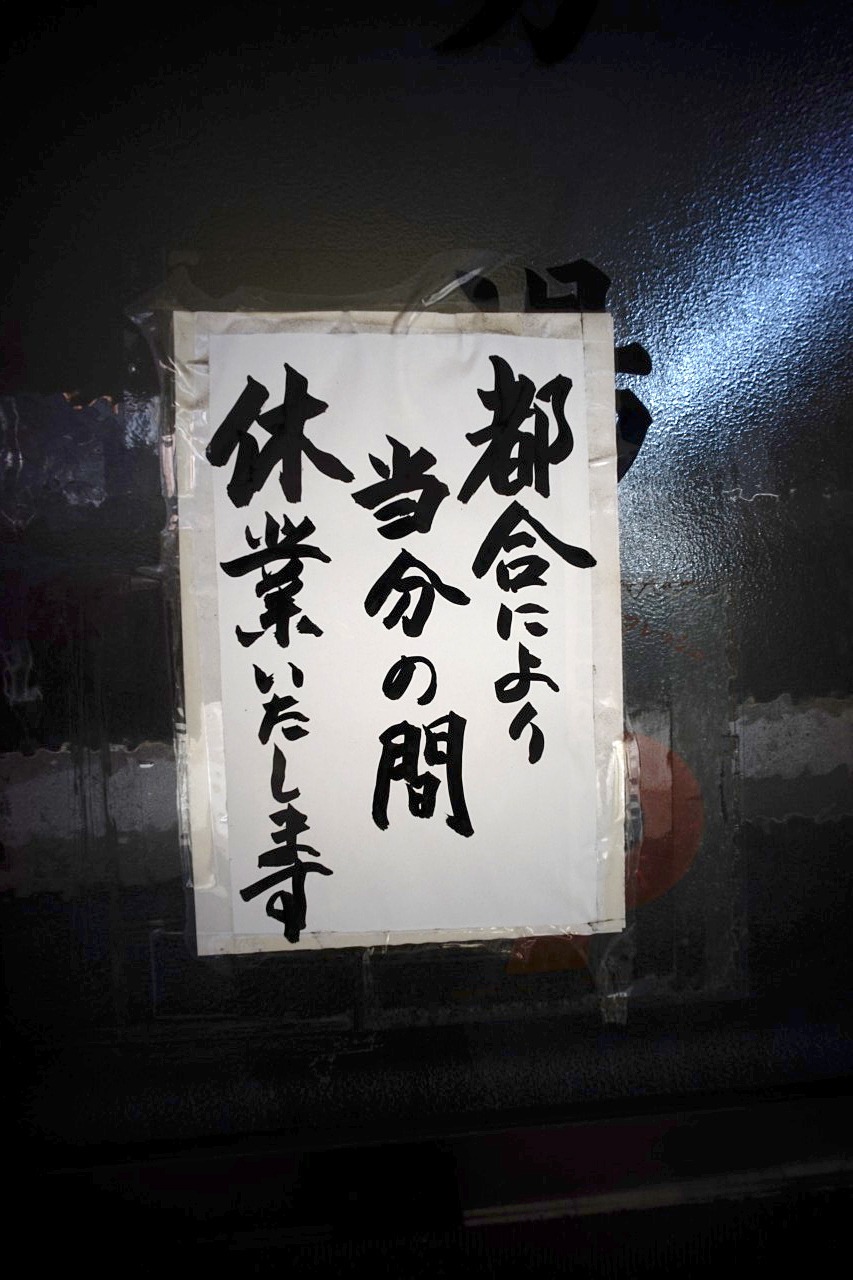 都合により
当分の間
休業いたします